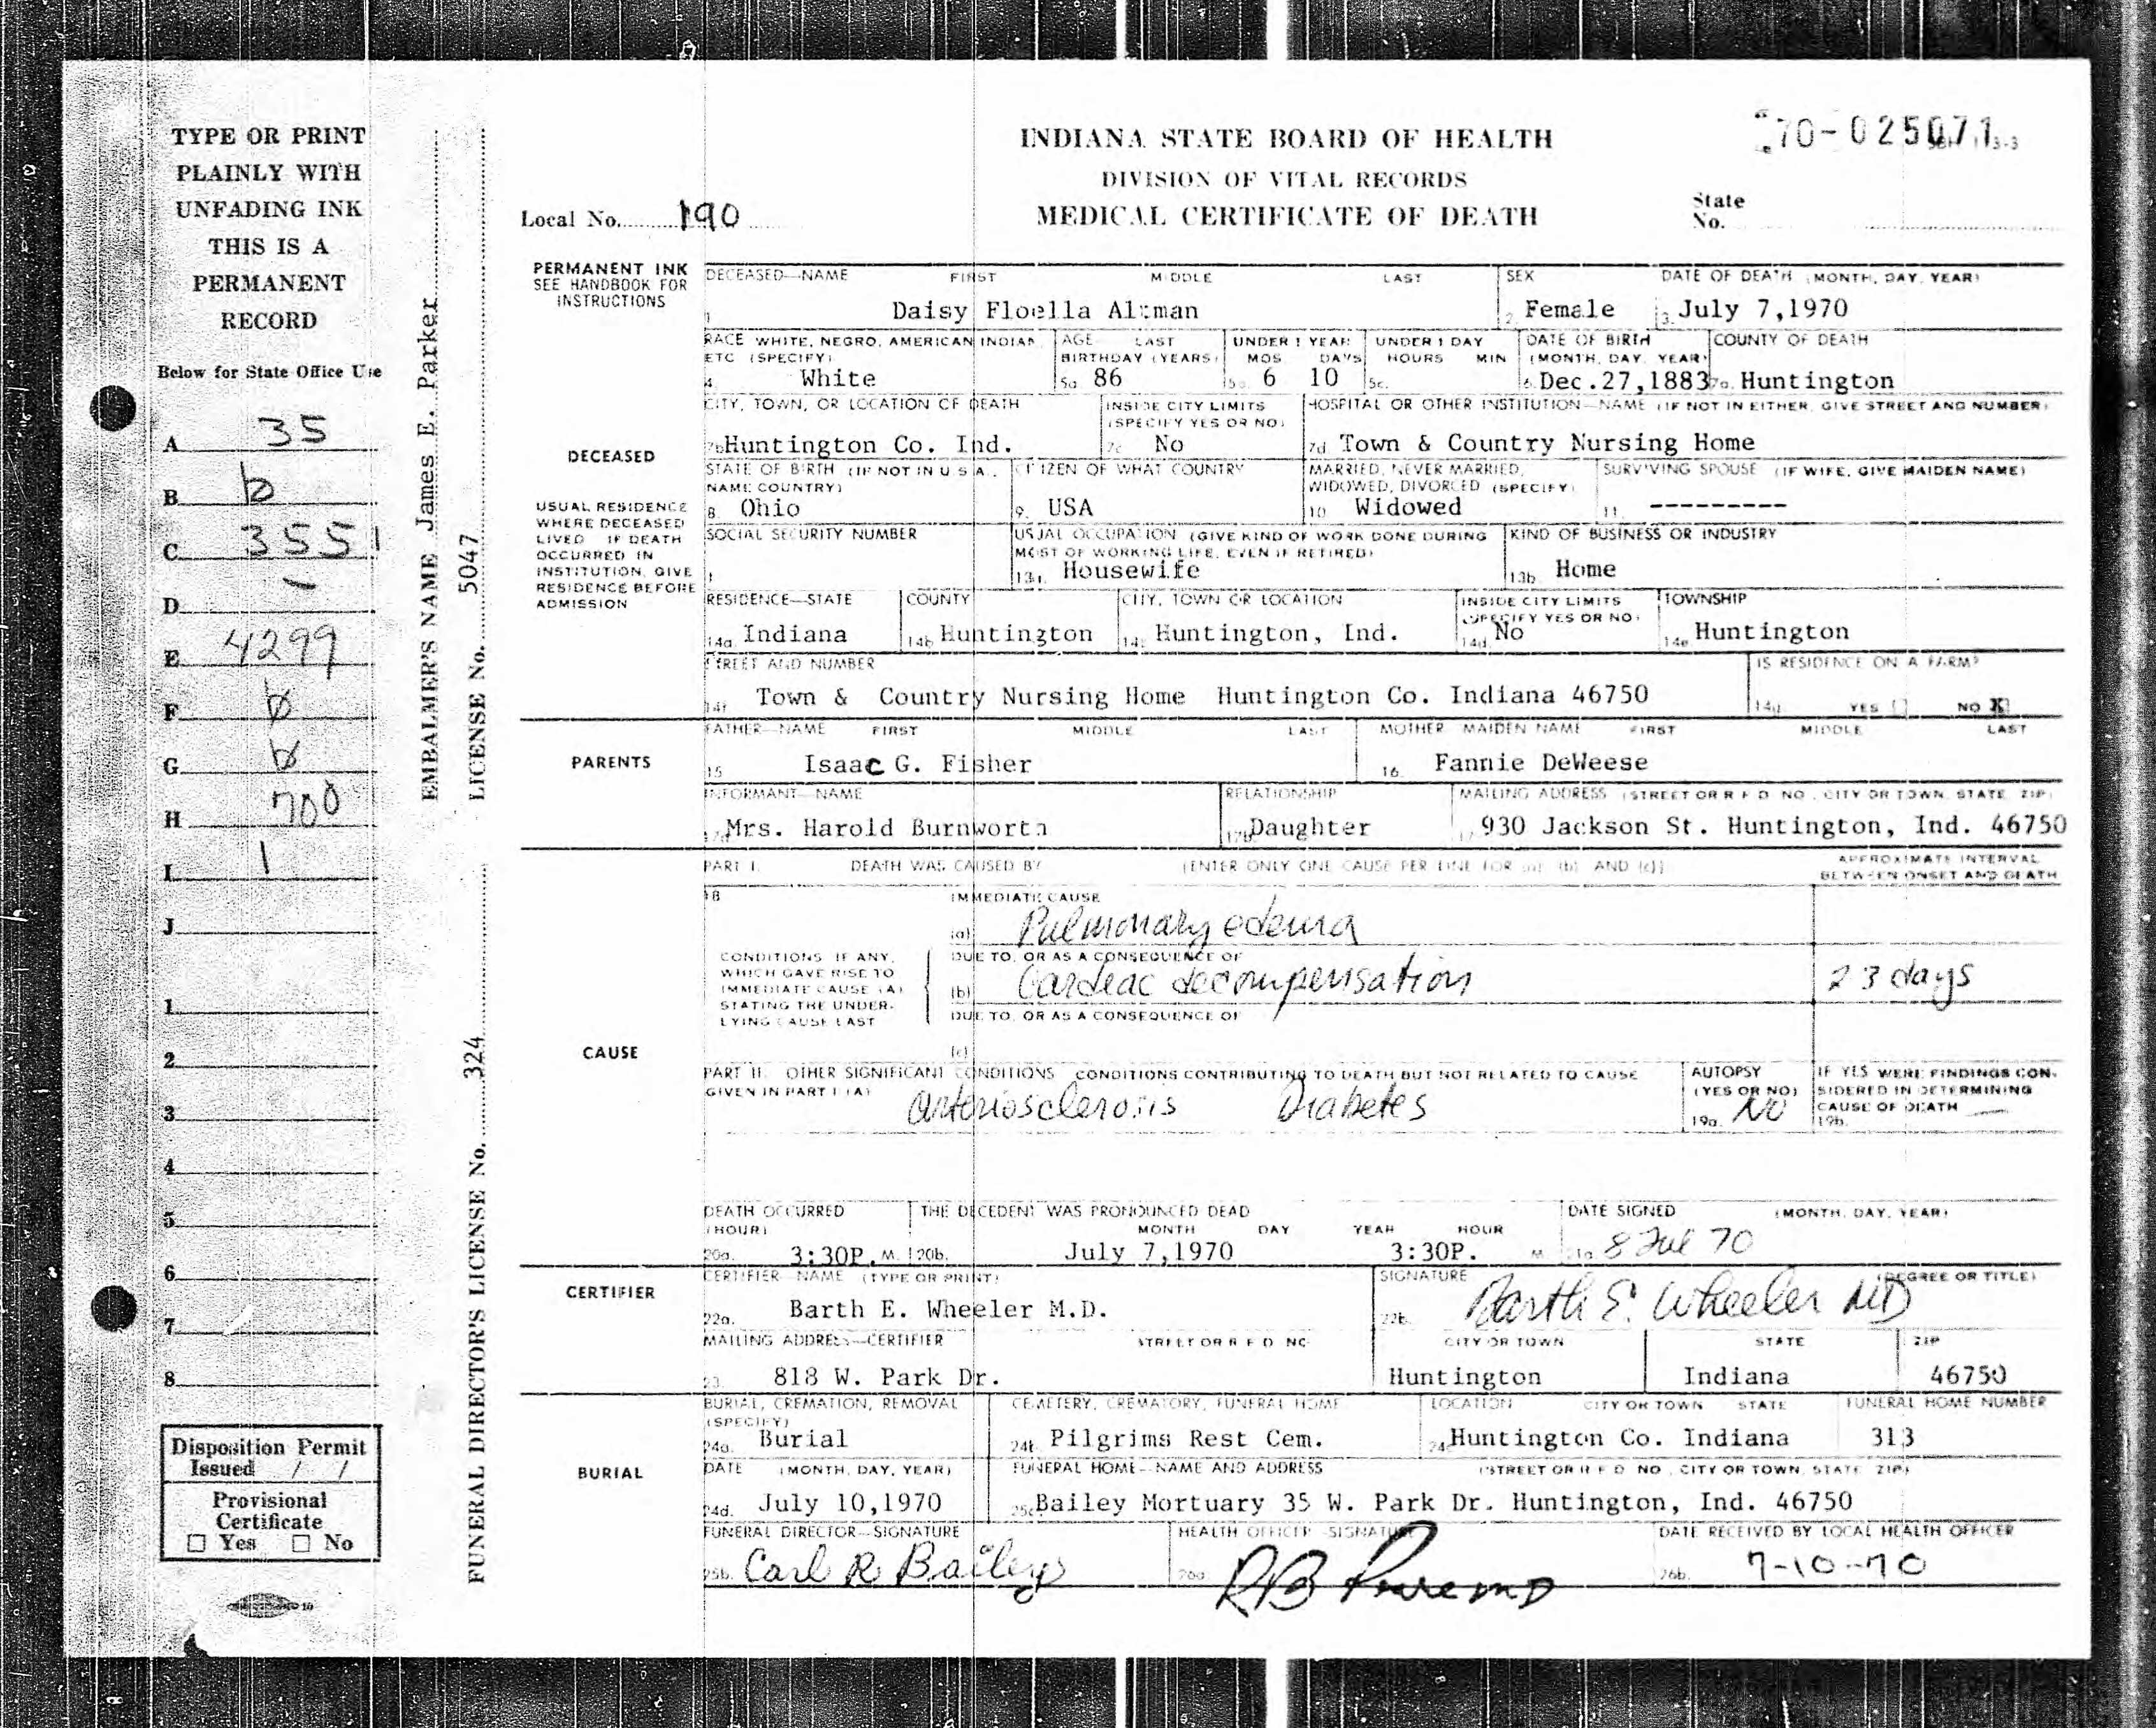 TYPE OR PRINT
PLAINLY WITH
UNFADING INK
THIS IS A
PERMANENT
RECORD
Below for State Office Use
A 35
B b
C 3551
D –
E 4299
F b
G b
H 700
I 1
J
1
2
3
4
5
6
7
8
Disposition Permit
Issued / /
Provisional
Certificate
☐ Yes ☐ No
EMBALMER'S NAME James E. Parker
LICENSE No. 5047
FUNERAL DIRECTOR'S LICENSE No. 324
70-025071
INDIANA STATE BOARD OF HEALTH
DIVISION OF VITAL RECORDS
MEDICAL CERTIFICATE OF DEATH
Local No. 190
State
No.
PERMANENT INK
SEE HANDBOOK FOR
INSTRUCTIONS
DECEASED—NAME FIRST MIDDLE LAST SEX DATE OF DEATH (MONTH, DAY, YEAR)
1 Daisy Floella Altman 2. Female 3. July 7,1970
RACE WHITE, NEGRO, AMERICAN INDIAN, AGE LAST UNDER 1 YEAR UNDER 1 DAY DATE OF BIRTH COUNTY OF DEATH
ETC (SPECIFY) BIRTHDAY (YEARS) MOS DAYS HOURS MIN (MONTH, DAY, YEAR)
4. White 5a 86 5b. 6 10 5c. 6. Dec.27,1883 7a. Huntington
CITY, TOWN, OR LOCATION OF DEATH INSIDE CITY LIMITS HOSPITAL OR OTHER INSTITUTION—NAME (IF NOT IN EITHER, GIVE STREET AND NUMBER)
(SPECIFY YES OR NO)
7b Huntington Co. Ind. 7c No 7d Town & Country Nursing Home
DECEASED
STATE OF BIRTH (IF NOT IN U S A, CITIZEN OF WHAT COUNTRY MARRIED, NEVER MARRIED, SURVIVING SPOUSE (IF WIFE, GIVE MAIDEN NAME)
NAME COUNTRY) WIDOWED, DIVORCED (SPECIFY)
8. Ohio 9. USA 10 Widowed 11. ---------
USUAL RESIDENCE
WHERE DECEASED
LIVED IF DEATH
OCCURRED IN
INSTITUTION, GIVE
RESIDENCE BEFORE
ADMISSION
SOCIAL SECURITY NUMBER USUAL OCCUPATION (GIVE KIND OF WORK DONE DURING KIND OF BUSINESS OR INDUSTRY
MOST OF WORKING LIFE, EVEN IF RETIRED)
13a. Housewife 13b. Home
RESIDENCE—STATE COUNTY CITY, TOWN OR LOCATION INSIDE CITY LIMITS TOWNSHIP
(SPECIFY YES OR NO)
14a. Indiana 14b Huntington 14c Huntington, Ind. 14d. No 14e Huntington
STREET AND NUMBER IS RESIDENCE ON A FARM?
14f Town & Country Nursing Home Huntington Co. Indiana 46750 14g. YES ☐ NO X
PARENTS
FATHER—NAME FIRST MIDDLE LAST MOTHER MAIDEN NAME FIRST MIDDLE LAST
15 Isaac G. Fisher 16. Fannie DeWeese
INFORMANT—NAME RELATIONSHIP MAILING ADDRESS (STREET OR R F D NO, CITY OR TOWN, STATE, ZIP)
17a Mrs. Harold Burnworth 17b Daughter 17 930 Jackson St. Huntington, Ind. 46750
PART I. DEATH WAS CAUSED BY (ENTER ONLY ONE CAUSE PER LINE FOR (a) (b) AND (c)) APPROXIMATE INTERVAL
BETWEEN ONSET AND DEATH
18 IMMEDIATE CAUSE
(a) Pulmonary edema
CONDITIONS IF ANY,
WHICH GAVE RISE TO
IMMEDIATE CAUSE (A)
STATING THE UNDER-
LYING CAUSE LAST
DUE TO, OR AS A CONSEQUENCE OF
(b) Cardeac decompensation 23 days
DUE TO, OR AS A CONSEQUENCE OF
(c)
CAUSE
PART II. OTHER SIGNIFICANT CONDITIONS CONDITIONS CONTRIBUTING TO DEATH BUT NOT RELATED TO CAUSE AUTOPSY IF YES WERE FINDINGS CON-
GIVEN IN PART I (A) (YES OR NO) SIDERED IN DETERMINING
CAUSE OF DEATH
arteriosclerosis Diabetes 19a. NO 19b. —
DEATH OCCURRED THE DECEDENT WAS PRONOUNCED DEAD DATE SIGNED (MONTH, DAY, YEAR)
(HOUR) MONTH DAY YEAR HOUR
20a. 3:30P. M. 20b. July 7,1970 3:30P. M 21a 8 Jul 70
CERTIFIER
CERTIFIER—NAME (TYPE OR PRINT) SIGNATURE (DEGREE OR TITLE)
22a. Barth E. Wheeler M.D. 22b. Barth E. Wheeler MD
MAILING ADDRESS—CERTIFIER STREET OR R F D NO CITY OR TOWN STATE ZIP
23. 818 W. Park Dr. Huntington Indiana 46750
BURIAL
BURIAL, CREMATION, REMOVAL CEMETERY, CREMATORY, FUNERAL HOME LOCATION CITY OR TOWN STATE FUNERAL HOME NUMBER
(SPECIFY)
24a. Burial 24b Pilgrims Rest Cem. 24 Huntington Co. Indiana 313
DATE (MONTH, DAY, YEAR) FUNERAL HOME—NAME AND ADDRESS (STREET OR R F D NO, CITY OR TOWN, STATE, ZIP)
24d. July 10,1970 25c Bailey Mortuary 35 W. Park Dr. Huntington, Ind. 46750
FUNERAL DIRECTOR—SIGNATURE HEALTH OFFICER—SIGNATURE DATE RECEIVED BY LOCAL HEALTH OFFICER
25b. Carl R Bailey 26a. RB 26b. 7-10-70